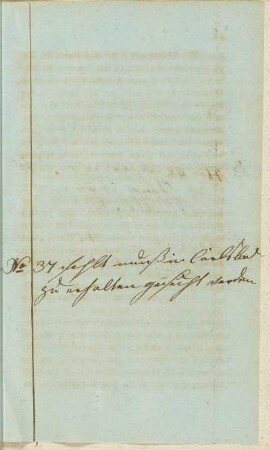 No 37 fehlt muß in Carlsbad
zu erhalten gesucht werden